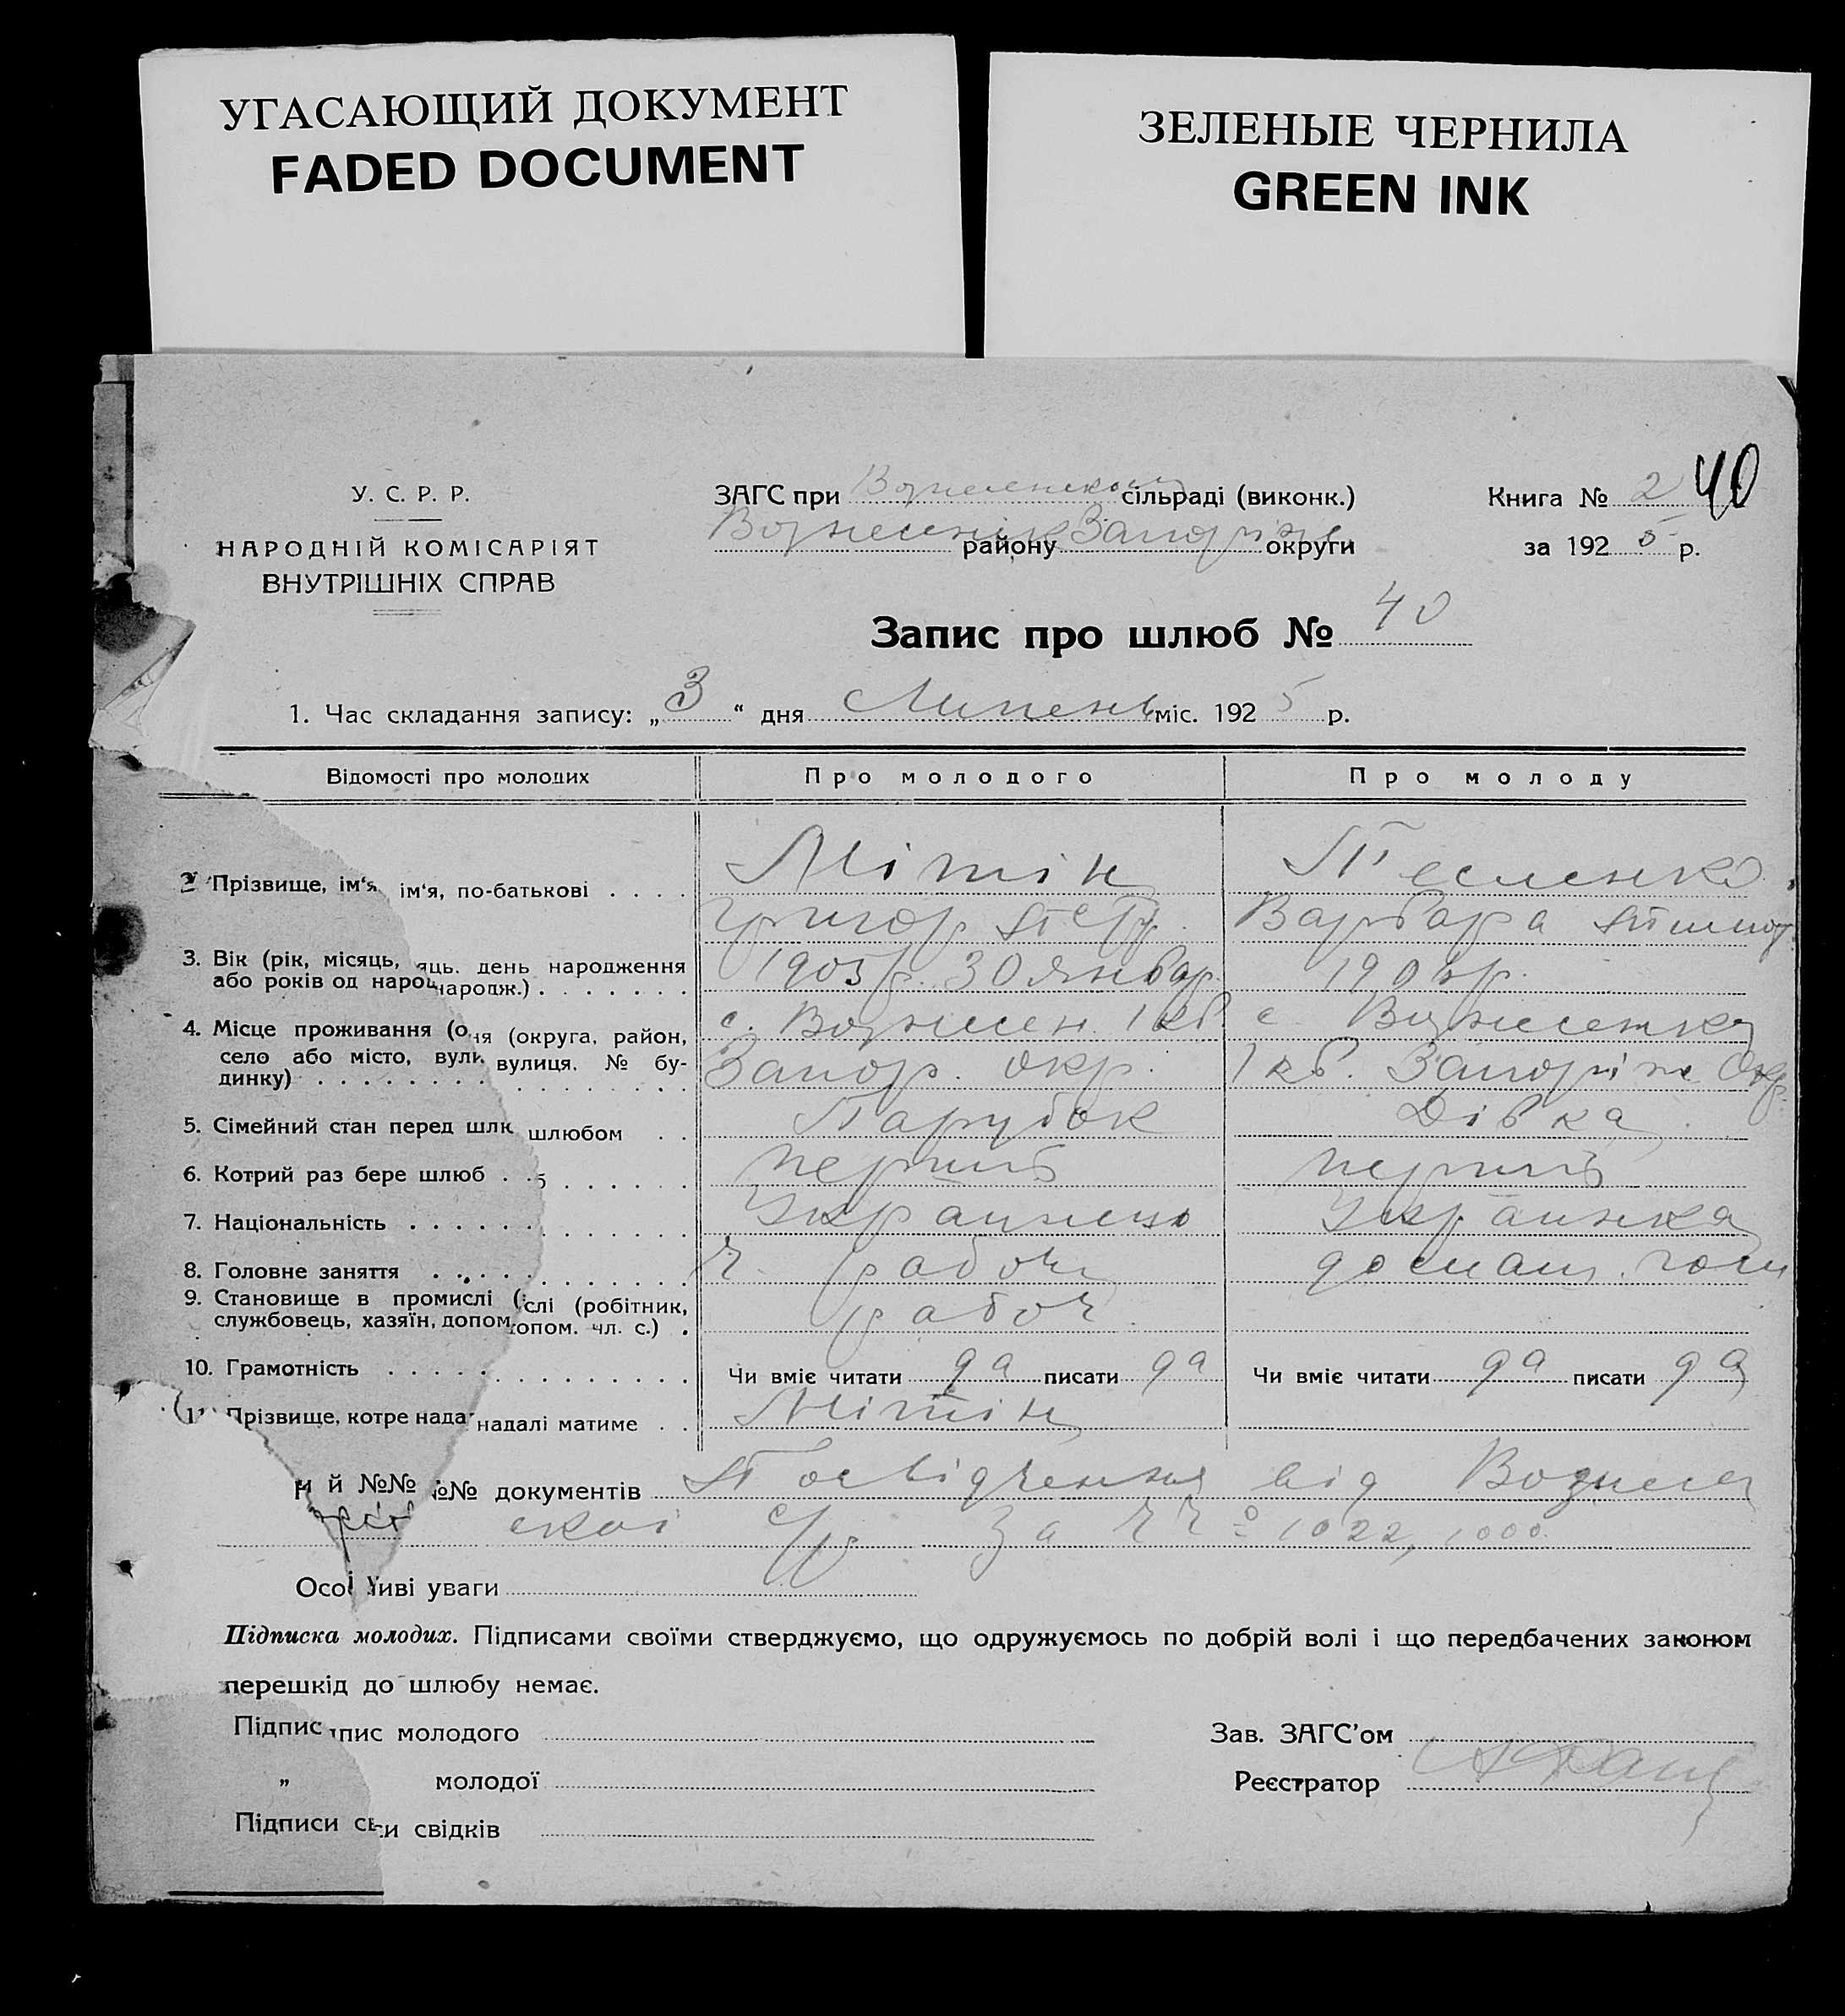 УГАСАЮЩИЙ ДОКУМЕНТ
FADED DOCUMENT
ЗЕЛЕНЫЕ ЧЕРНИЛА
GREEN INK
У. С. Р. Р.
НАРОДНІЙ КОМІСАРІЯТ
ВНУТРІШНІХ СПРАВ
ЗАГС при сільраді (виконк.)
району округи
Книга № 2 40
за 1925 р.
Запис про шлюб № 40
1. Час складання запису: „3“ дня Липень міс. 1925 р.
Відомості про молодих
Про молодого
Про молоду
2 Прізвище, ім'я ім'я, по-батькові . . . .
Мітін
Тесленко
Григор Петр.
Варвара Тимоф.
3. Вік (рік, місяць, яць, день народження
або років од народ народж.) . . . . . . .
1905 р. 30 Январ.
190 р.
4. Місце проживання (о ня (округа, район,
село або місто, вули вулиця, № бу-
динку) . . . . . . . . . . . .
с. Вознесен. 1 кв.
Запор. окр.
с. Вознесенка
1 кв. Запоріже Окр.
5. Сімейний стан перед шлю шлюбом . .
Парубок
Дівка
6. Котрий раз бере шлюб . . б . . . . . .
перший
перший
7. Національність . . . . . . . . . . . . .
Украинець
Украинка
8. Головне заняття . . . . . . . . . . . .
робоч
домаш. госп
9. Становище в промислі ( слі (робітник,
службовець, хазяїн, допом. допом. чл. с.) .
рабоч.
10. Грамотність . . . . . . . . . . . . . .
Чи вміє читати да писати да
Чи вміє читати да писати да
11 Прізвище, котре нада надалі матиме . .
Мітін
й №№ №№ документів Посвідчення від Вознесен
ської с/р за чч 1022, 1000.
Особ иві уваги
Підписка молодих. Підписами своїми стверджуємо, що одружуємось по добрій волі і що передбачених законом
перешкід до шлюбу немає.
Підпис пис молодого
„ молодої
Підписи св си свідків
Зав. ЗАГС'ом
Реєстратор